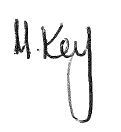 M. Key